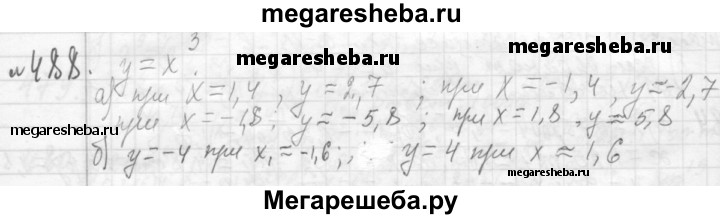 megaresheba.ru
№488. y = x³
а) при x = 1,4, y = 2,7; при x = -1,4, y ≈ -2,7
при x = -1,8; y ≈ -5,8; при x = 1,8, y ≈ 5,8
б) y = -4 при x, ≈ -1,6; , y = 4 при x ≈ 1,6
megaresheba.ru
megaresheba.ru
megaresheba.ru
megaresheba.ru
megaresheba.ru
Мегарешеба.ру